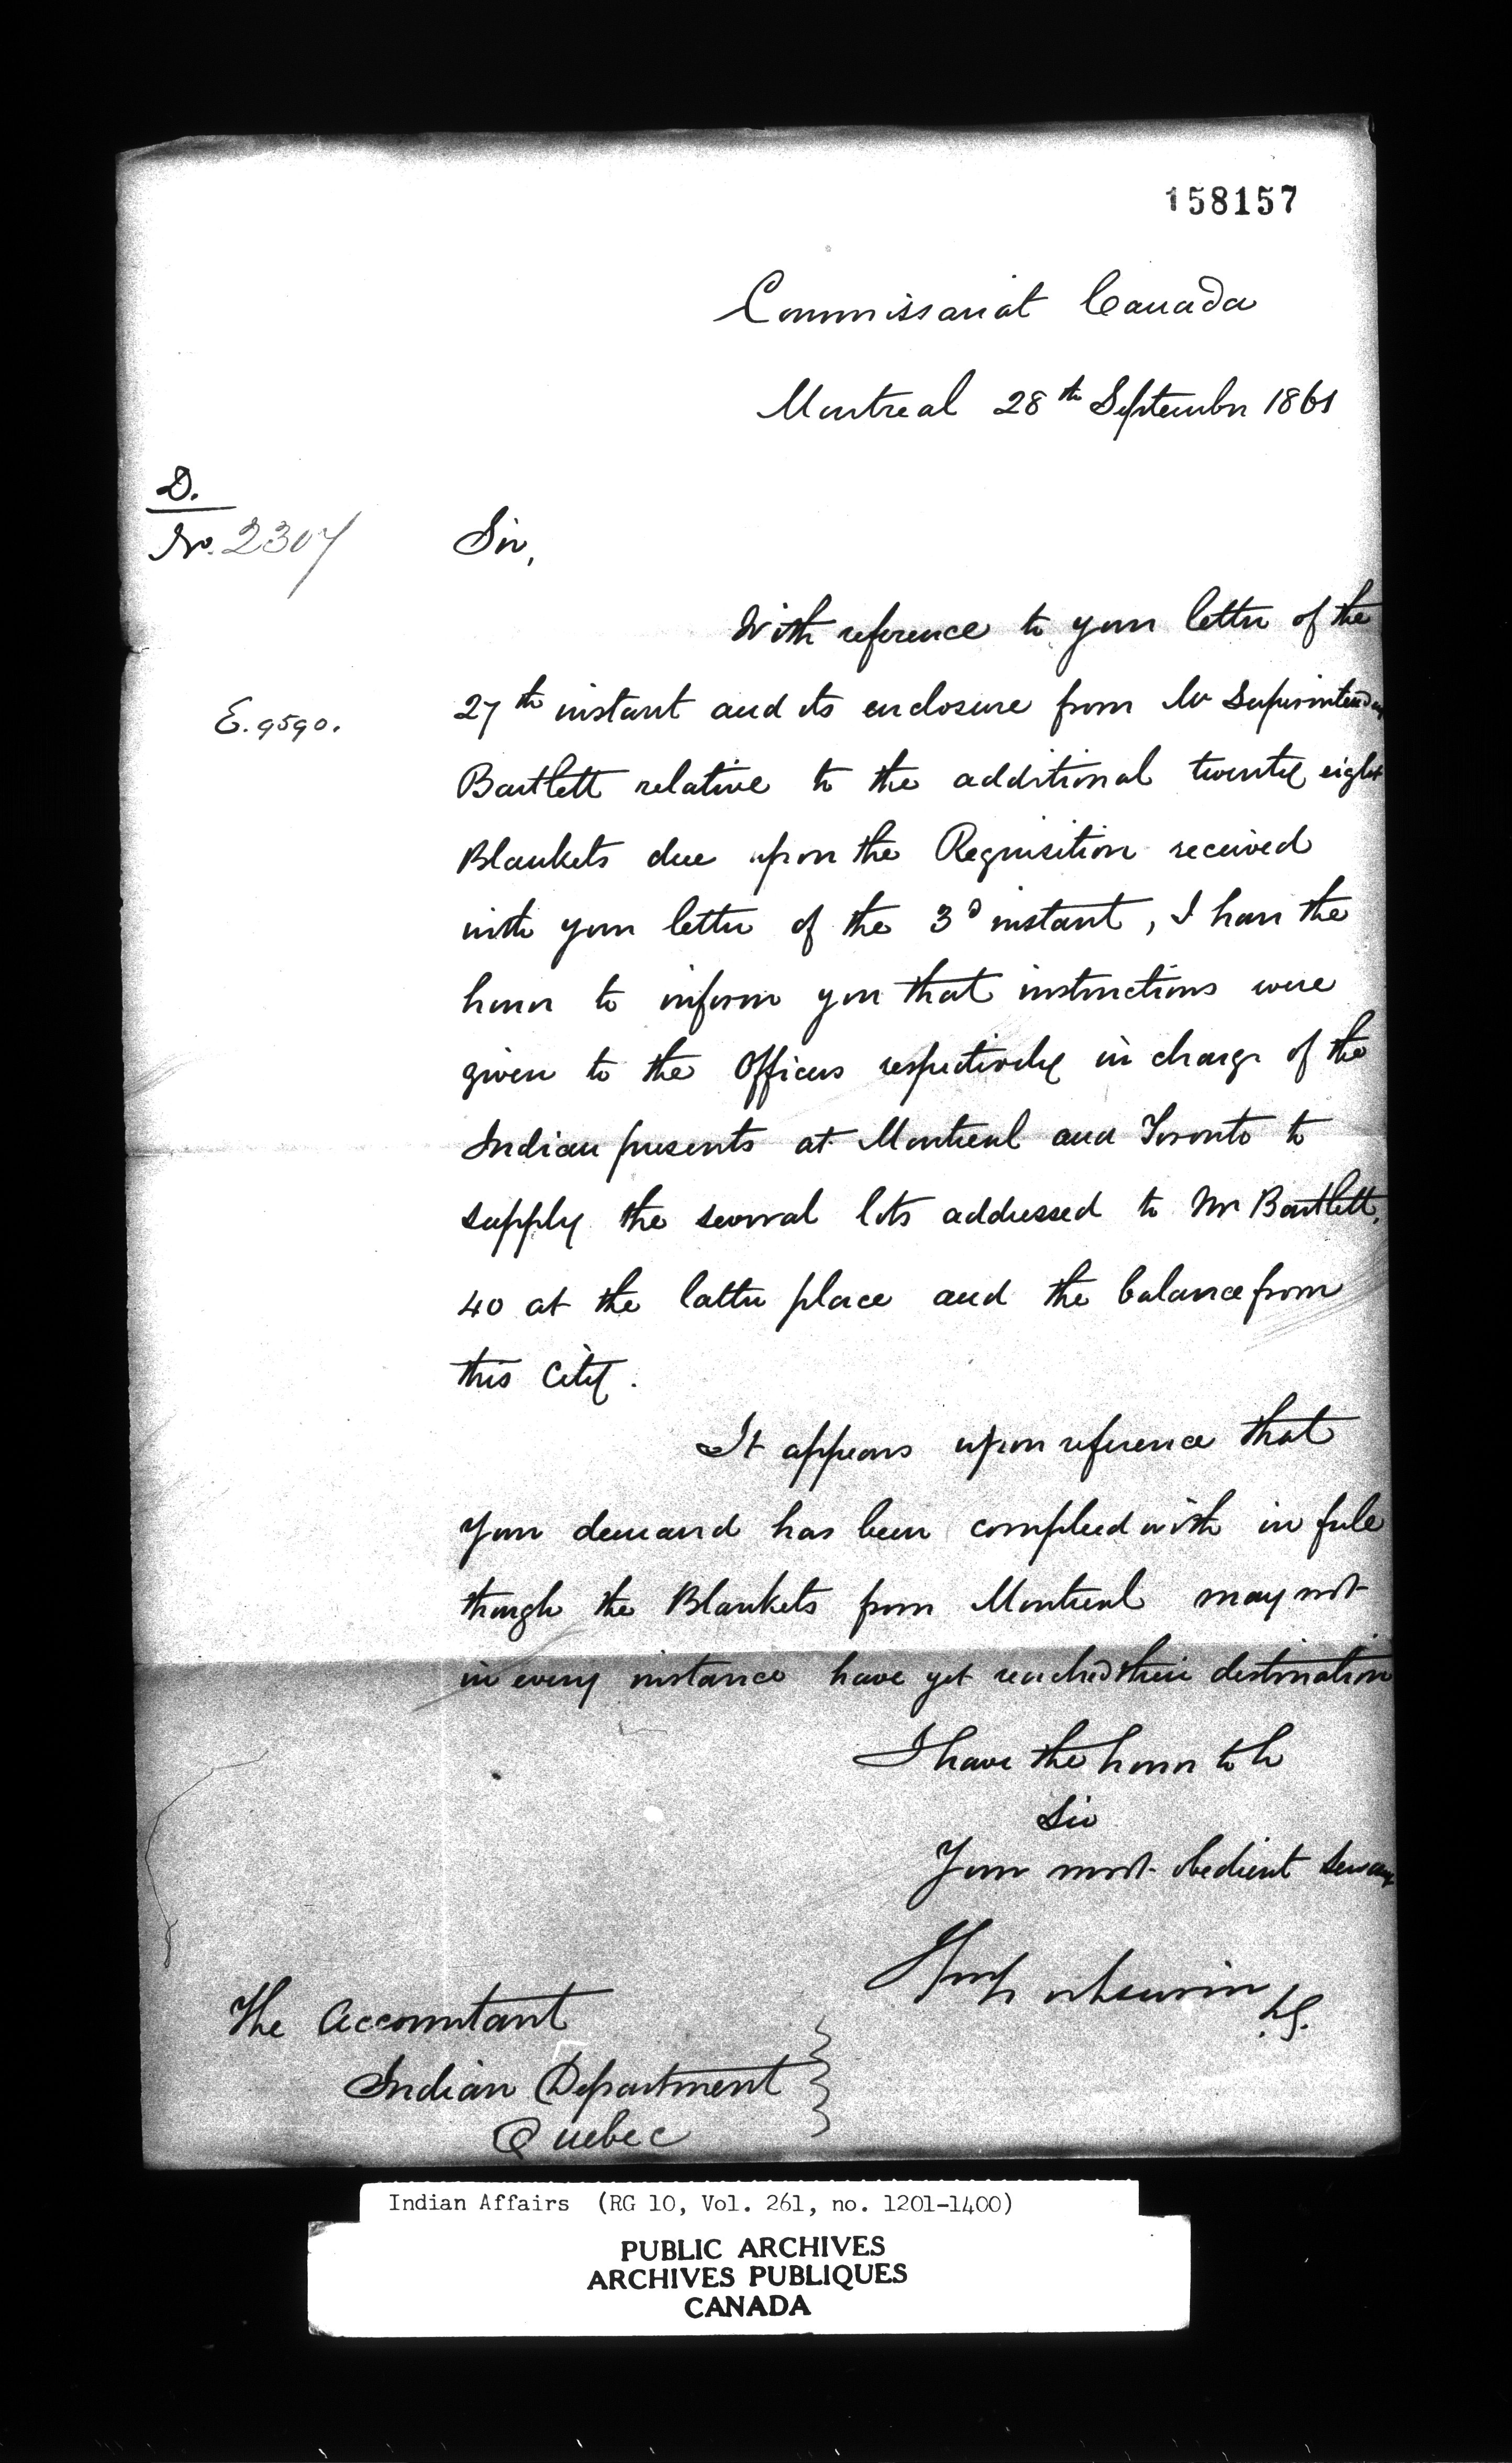 158157
Commissariat Canada
Montreal 28th September 1861
D.
No. 2307
Sir,
With reference to your letter of the
E.9590.
27th instant and its enclosure from Mr Superintend
Bartlett relative to the additional twenty eight
Blankets due upon the Requisition received
with your letter of the 3d instant, I have the
honor to inform you that instructions were
given to the Officers respectively in charge of the
Indian presents at Montreal and Toronto to
supply the several lots addressed to Mr Bartlett,
40 at the latter place and the balance from
this City.
It appears upon reference that
your demand has been complied with in full
though the Blankets from Montreal may not
in every instance have yet reached their destination
I have the honor to be
Sir
Your most obedient servant
The Accountant
Indian Department
Quebec
Indian Affairs (RG 10, Vol. 261, no. 1201-1400)
PUBLIC ARCHIVES
ARCHIVES PUBLIQUES
CANADA